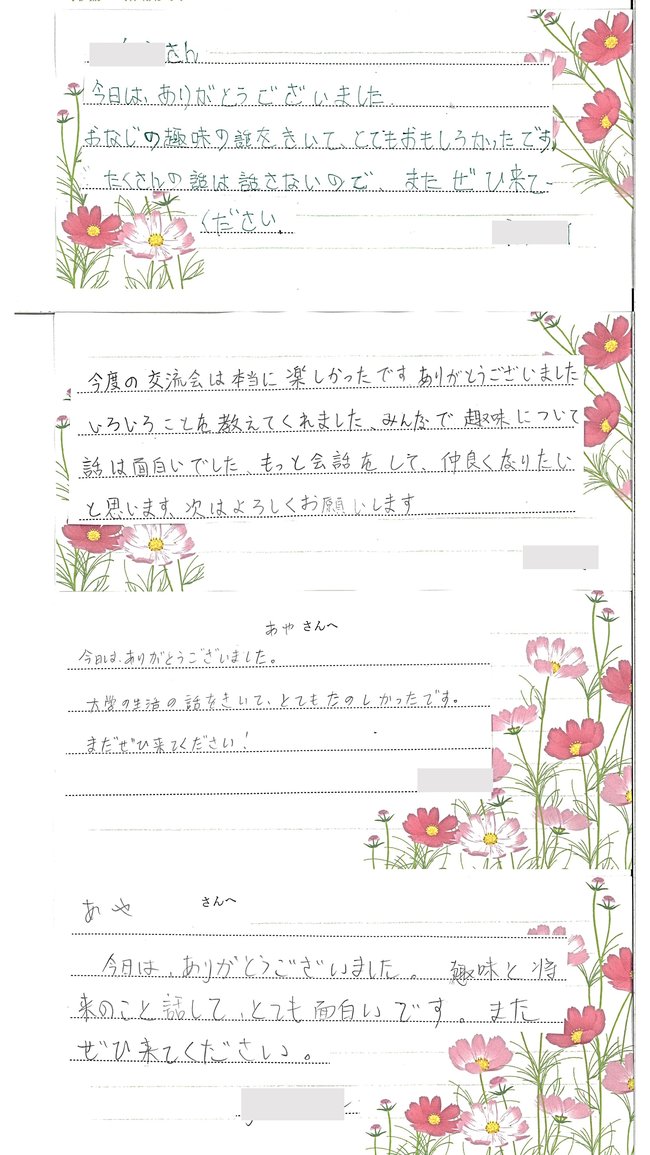 さん
今日は、ありがとうございました
おなじの趣味の話をきいて、とてもおもしろかったです
たくさんの話は話さないので、またぜひ来て
ください
今度の交流会は本当に楽しかったですありがとうございました
いろいろことを教えてくれました、みんなで趣味について
話は面白いでした、もっと会話をして、仲良くなりたい
と思います、次はよろしくお願いします
あやさんへ
今日は、ありがとうございました。
大学の生活の話をきいて、とてもたのしかったです。
まだぜひ来てください!
あや さんへ
今日は、ありがとうございました。趣味と将
来のこと話して、とても面白いです。また
ぜひ来てください。